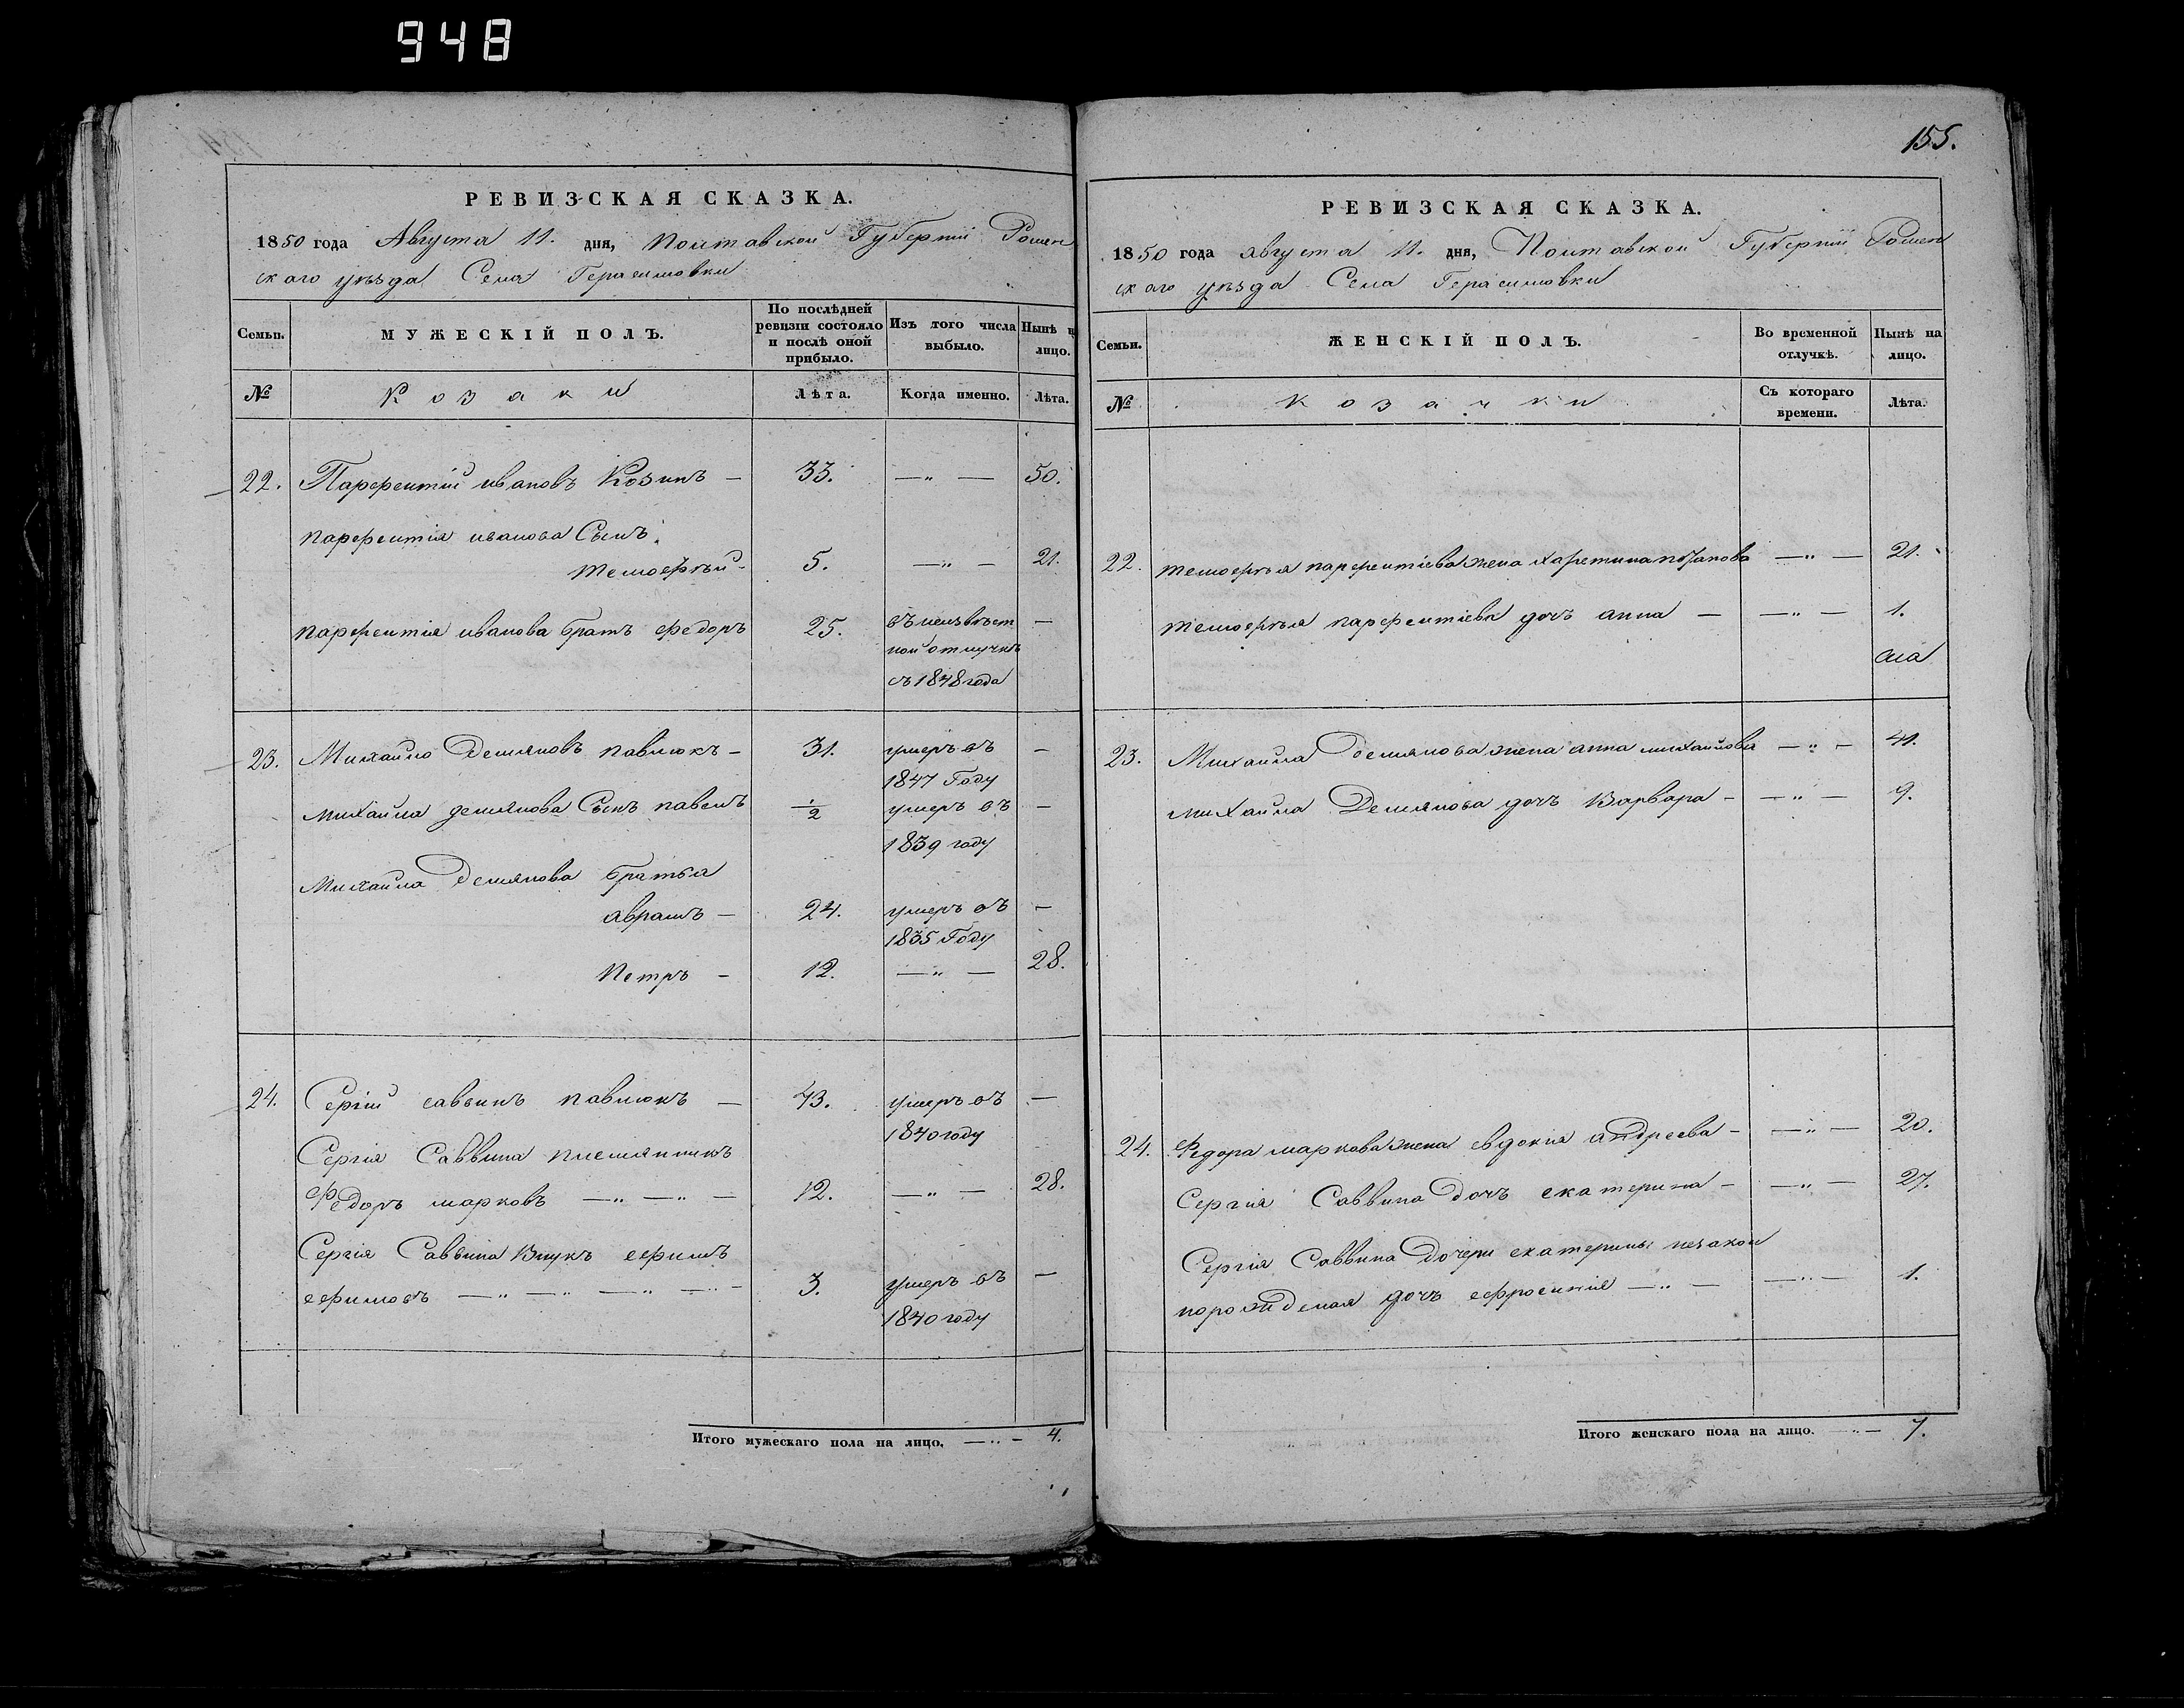 948
РЕВИЗСКАЯ СКАЗКА.
1850 года Августа 11. дня, Полтавской Губернiи Ромен
скаго уѣзда Села Герасимовки
Семьи. МУЖЕСКIЙ ПОЛЪ. По послѣдней ревизiи состояло и послѣ оной прибыло. Изъ того числа выбыло. Нынѣ н лицо.
№ Козаки Лѣта. Когда именно. Лѣта.
22. Парфентiй ивановъ Козинъ — 33. — " — 50.
парфентiя иванова Сынъ.
тимофѣй - 5. — " — 21.
парфентiя иванова братъ федоръ 25. въ неизвѣст —
ной отлучкѣ
съ 1848 года
23. Михайло Демяновъ павлюкъ — 31. умеръ въ —
1847 Году
михайла демянова Сынъ павелъ 1/2 умеръ въ —
1839 году
Михайла Демянова братья
аврамъ — 24. умеръ въ —
1835 Году
Петръ — 12. — " — 28.
24. Сергiй саввинъ павлюкъ — 43. умеръ въ —
1840 году
Сергiя Саввина племянникъ
Федоръ марковъ — " — " — 12. — " — 28.
Сергiя Саввина Внукъ ефимъ
ефимовъ — " — " — " — " — 3. умеръ въ —
1840 году
Итого мужескаго пола на лицо. — " — 4.
155.
РЕВИЗСКАЯ СКАЗКА.
1850 года августа 11. дня, Полтавской Губернiи Ромен
скаго уѣзда Села Герасимовки
Семьи. ЖЕНСКIЙ ПОЛЪ. Во временной отлучкѣ. Нынѣ на лицо.
№ Козачки Съ котораго времени. Лѣта.
22. тимофѣя парфентiева жена — " — 21.
тимофѣя парфентiева дочъ анна — — " — 1.
23. Михайла демянова жена анна михайлова — " — 41.
михайла Демянова дочъ Варвара — — " — 9.
24. Федора маркова жена евдокия андреева — — " — 20.
Сергия Саввина Дочъ екатерина — — " — 27.
Сергiя Саввина Дочери екатерины незакон
порожденая дочъ ефросиния — " — — " — 1.
Итого женскаго пола на лицо. — " — 7.